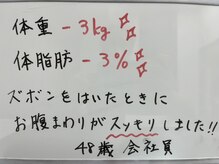 体重 -3kg
体脂肪 -3%
ズボンをはいたときに
お腹まわりがスッキリしました!!
48歳 会社員